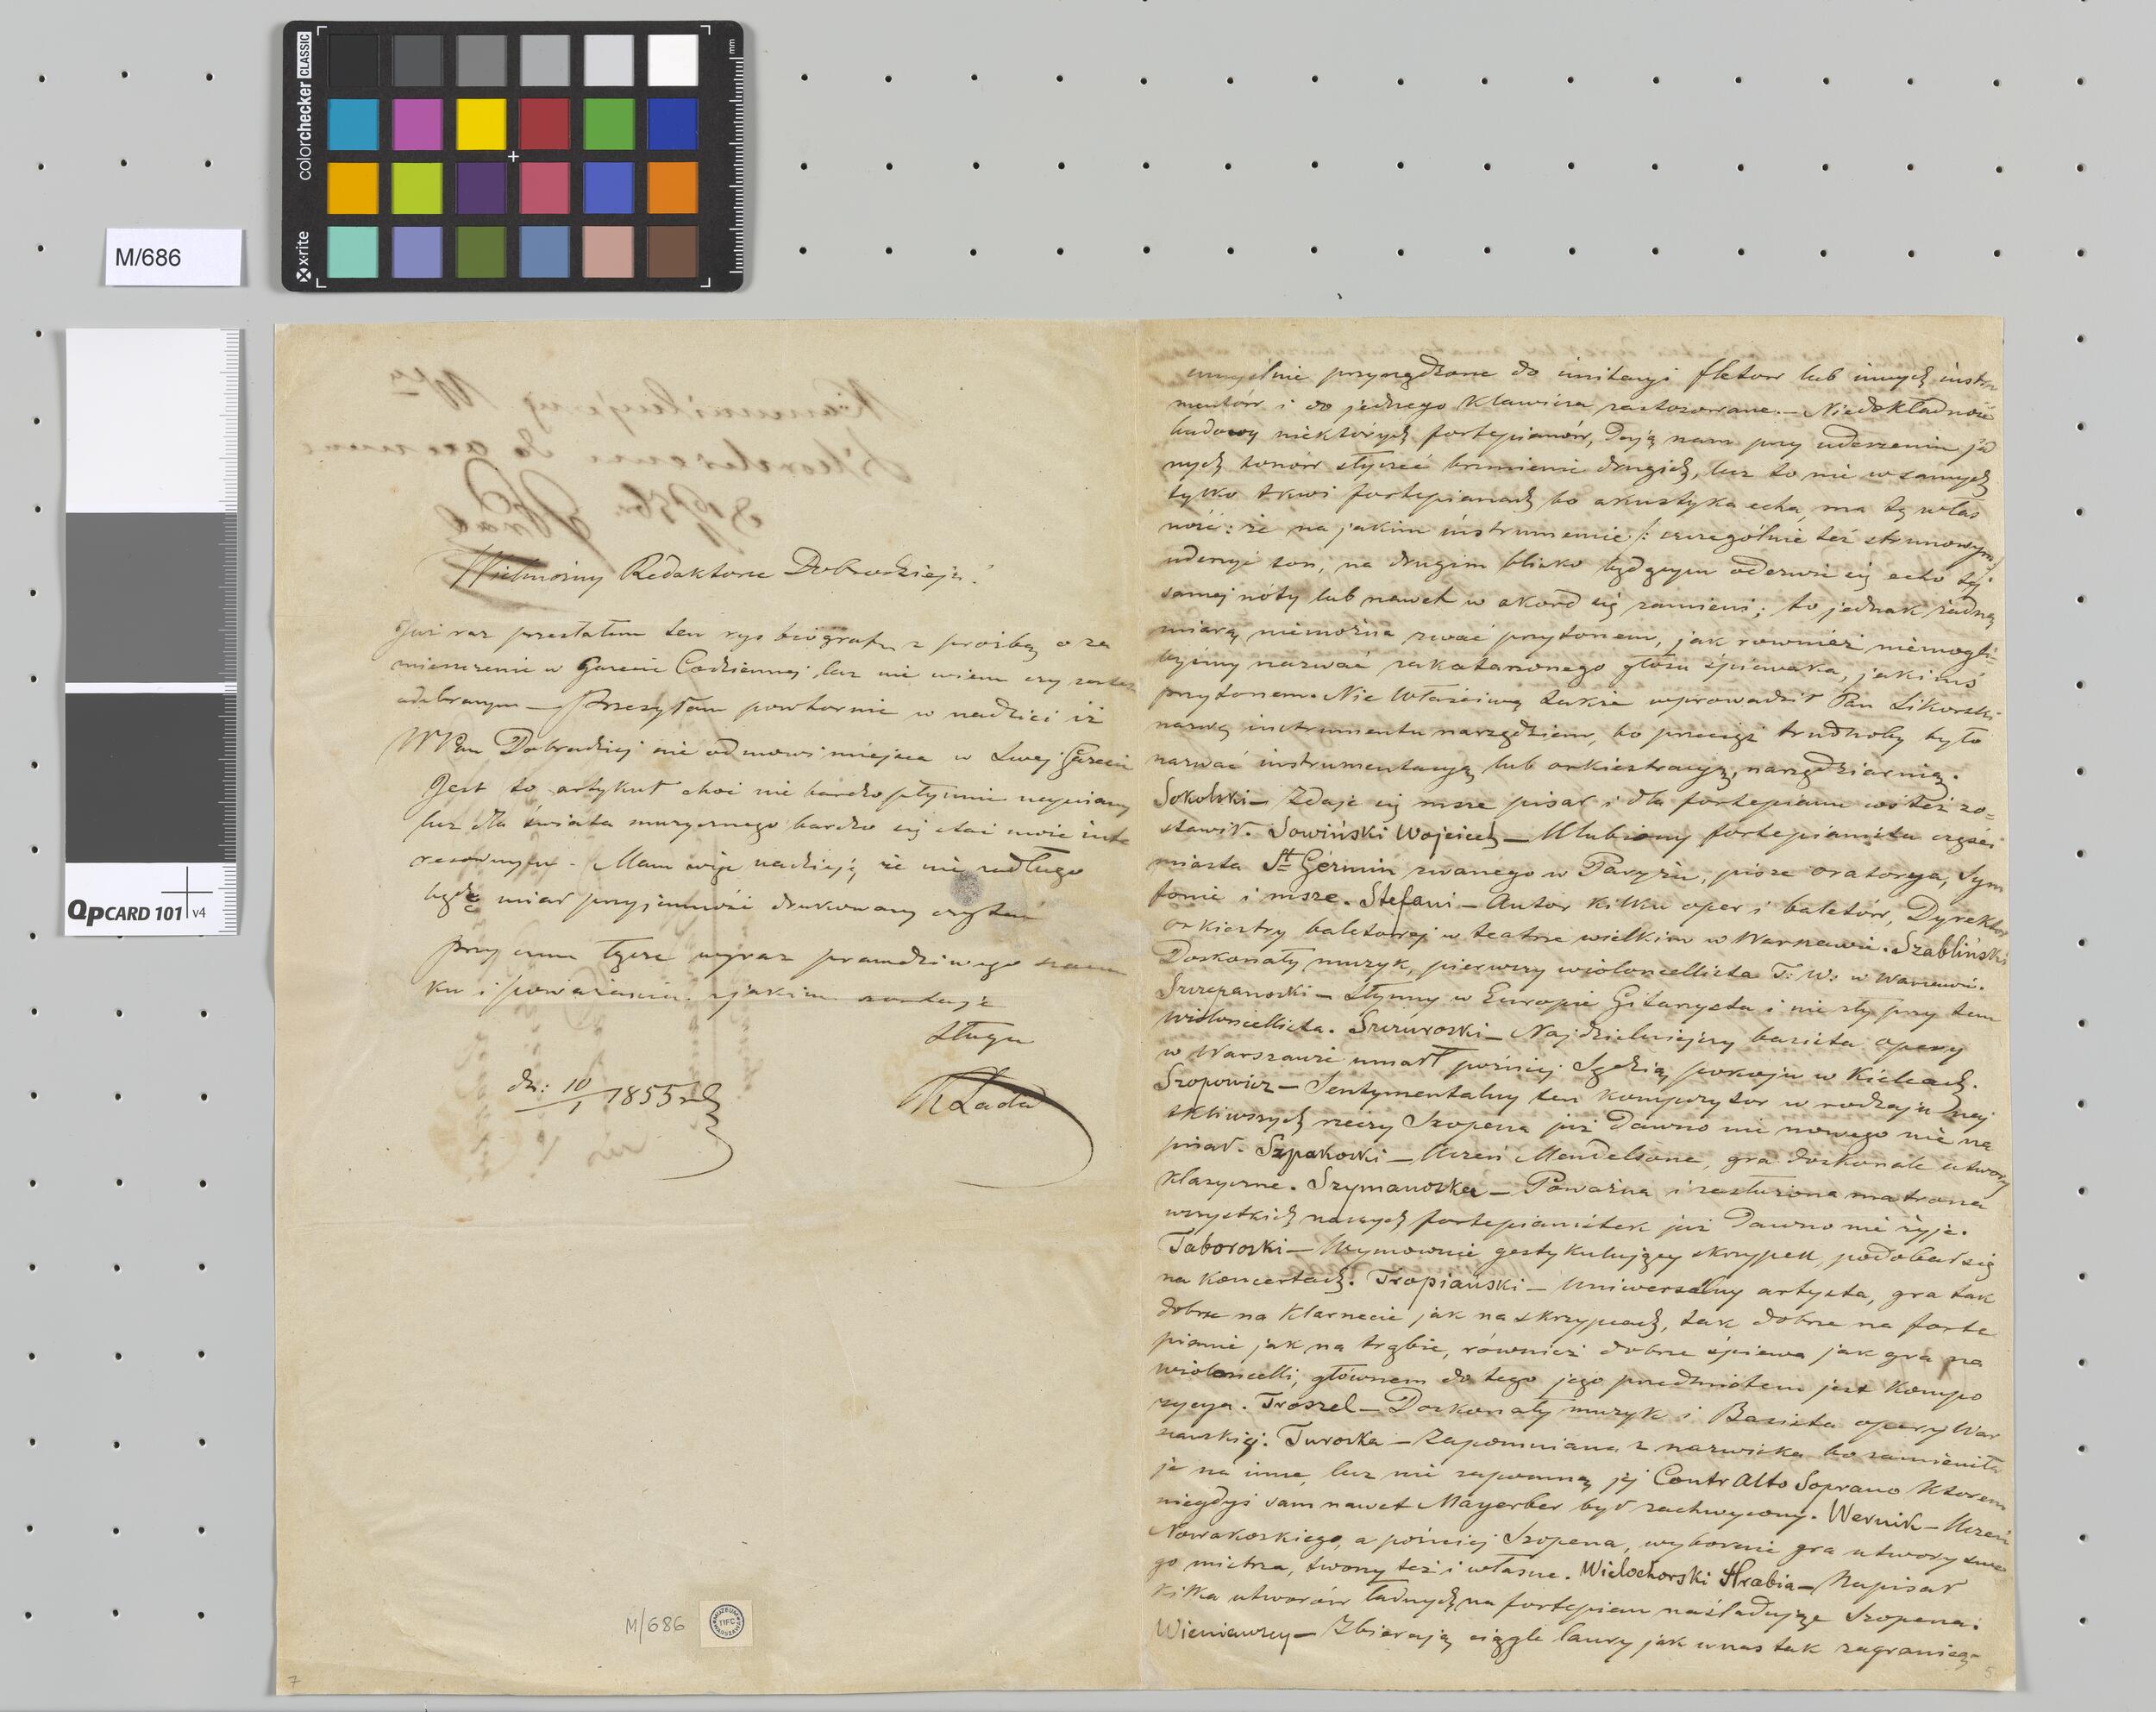 colorchecker CLASSIC
x-rite
mm
M/686
QpCARD 101 v4
Wielmożny Redaktorze Dobrodzieju!
Już raz przesłałem ten rys biograf z prośbą o za
mieszczenie w Gazecie Codziennej, lecz nie wiem czy
odebranym — Przesyłam powtornie w nadziei iż
WPan Dobrodziej nie odmowi miejsca w Swej Gazecie
Jest to artykuł choć nie bardzo płynnie napisany
lecz dla świata muzycznego bardzo się stać może inte
resownym. Mam więc nadzieję że nie zadługo
będę miał przyjemność drukowany czytać
przy czem łącze wyraz prawdziwego szacun
ku i poważania z jakim zostaję
Sługa
K Łada
dn: 10/1 1855
M/686
MUZEUM TIFC WARSZAWA
7
umyślnie przyrządzone do imitacyi fletow lub innych instru
mentów i do jednego klawisza zastosowane. — Niedokładność
budowy niektórych fortepianów, dają nam przy uderzeniu je
nych tonów słyszeć brzmienie drugich, lecz to nie w samych
tylko tkwi fortepianach bo akustyka echa, ma tę włas
ność: że na jakim instrumencie /: szczególnie też strunowym :/
uderzyć ton, na drugim blisko będącym odezwie się echo tej
samej nóty lub nawet w akord się zamieni; to jednak żadną
miarą niemożna zwać przytonem, jak rownież niemogli
byśmy nazwać zakatarzonego głosu śpiewaka, jakimś
przytonem. Nie Właściwą także wprowadził Pan Sikorski
nazwę instrumentu narzędziem, bo przecież trudnoby było
nazwać instrumentacyą lub orkiestracyą, narzędziarnią.
Sokolski — Zdaje się msze pisał i dla fortepianu coś też zo=
stawił. Sowiński Wojciech — Ulubiony fortepianista części
miasta St Gérmin zwanego w Paryżu, pisze oratorya, Sym
fonie i msze. Stefani — Autor kilku oper i baletów, Dyrektor
orkiestry baletowej w teatrze wielkim w Warszawie. Szabliński
Doskonały muzyk, pierwszy wioloncellista T: W: w Warszawie.
Szczepanoski — Słynny w Europie Gitarzysta i nie zły przy tem
wioloncellista. Szczuroski — Najdzielniejszy basista opery
w Warszawie umarł poźniej Sędzią pokoju w Kielcach.
Szopowicz — Sentymentalny ten kompozytor w rodzaju naj
tkliwszych rzeczy Szopena już dawno nic nowego nie na
pisał. Szpakoski — Uczeń Mendelsona, gra doskonale utwory
klasyczne. Szymanoska — Poważna i zasłużona matrona
wszystkich naszych fortepianistek już dawno nie żyje.
Taboroski — Wymownie gestykulujący skrzypek, podobał się
na koncertach. Tropiański — Uniwersalny artysta, gra tak
dobrze na klarnecie jak na skrzypcach, tak dobrze na forte
pianie jak na trąbie, równieź dobrze śpiewa jak gra na
wioloncelli, głównem do tego jego przedmiotem jest kompo
zycya. Troszel — Doskonały muzyk i Basista opery War
szawskiej. Turoska — Zapomniana z nazwiska bo zamieniła
je na inne, lecz nie zapomną jej Contr Alto Soprano ktorem
niegdyś sam nawet Mayerber był zachwycony. Wernik — Uczeń
Nowakoskiego, a poźniej Szopena, wybornie gra utwory swe
go mistrza, tworzy też i własne. Wielochorski Hrabia — Napisał
kilka utworów ładnych na fortepian naśladując Szopena.
Wieniawscy — Zbierają ciągle laury jak u nas tak zagranicą
5